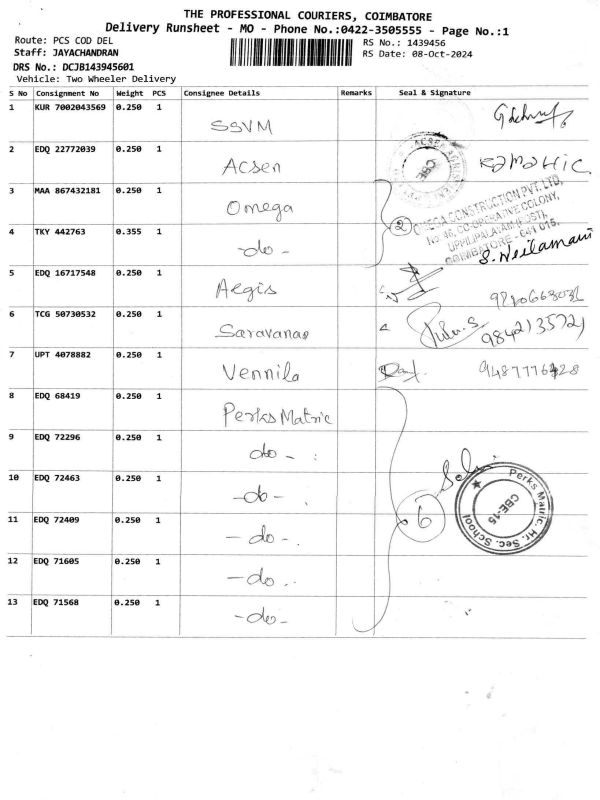 THE PROFESSIONAL COURIERS, COIMBATORE
Delivery Runsheet - MO - Phone No.:0422-3505555 - Page No.:1
Route: PCS COD DEL
RS No.: 1439456
Staff: JAYACHANDRAN
RS Date: 08-Oct-2024
DRS No.: DCJB143945601
Vehicle: Two Wheeler Delivery
S No Consignment No Weight PCS Consignee Details Remarks Seal & Signature
1 KUR 7002043569 0.250 1 SSVM
2 EDQ 22772039 0.250 1 Acsen KAMAHIC
ACSEN
CBE
3 MAA 867432181 0.250 1 Omega
2
OMEGA CONSTRUCTION PVT. LTD,
No 46, CO-OPERATIVE COLONY,
UPPILIPALAYAM (POST),
COIMBATORE - 641 015.
4 TKY 442763 0.355 1 -do- S. Neelamani
5 EDQ 16717548 0.250 1 Aegis
6 TCG 50730532 0.250 1 Saravanao 9842135721
7 UPT 4078882 0.250 1 Vennila
8 EDQ 68419 0.250 1 Perks Matric
9 EDQ 72296 0.250 1 do - :
10 EDQ 72463 0.250 1 -do- :
6
Perks Matric Hr. Sec. School
CBE-15
11 EDQ 72409 0.250 1 -do- :
12 EDQ 71605 0.250 1 -do ..
13 EDQ 71568 0.250 1 -do-